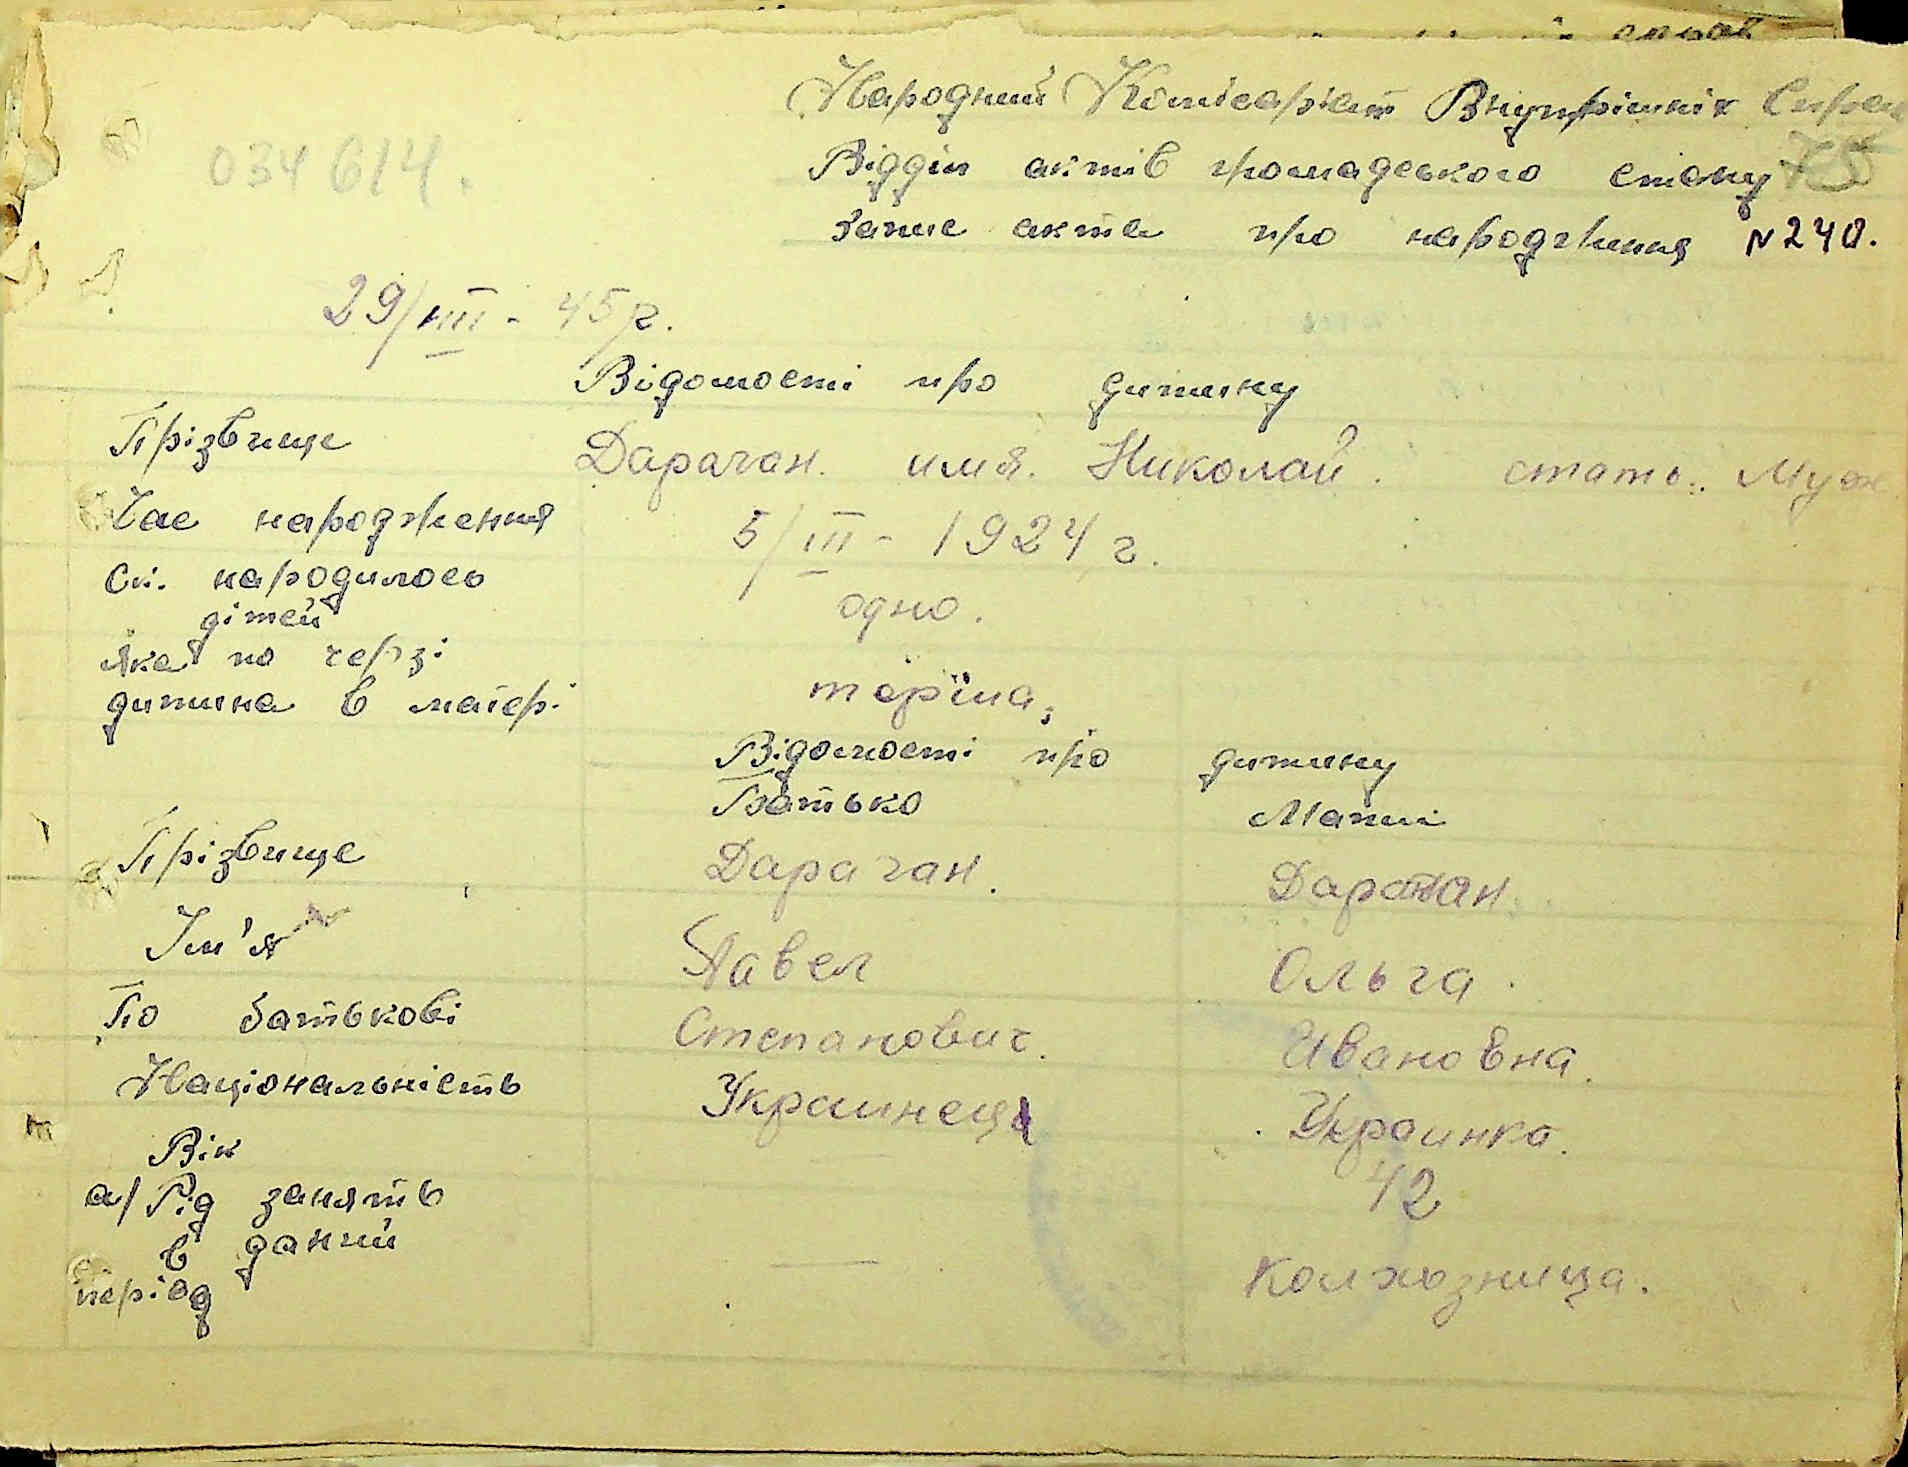 Народний Комісаріат Внутрішніх Справ
034614.
Відділ актів громадського стану 75
Запис акта про народження N 240.
29/VIII - 45 р.
Відомості про дитину
Прізвище Дараган. имя. Николай. стать.. Муж
Час народження 5/III - 1924 г.
Ск. народилось дітей одно.
яка по черзі
дитина в матері
Відомості про дитину
Батько Матері
Прізвище Дараган. Дараган.
Ім'я Павел Ольга.
По батькові Степанович. Ивановна.
Національність Украинец Украинка.
Вік 42
а/ Рід занять
в даний
період — Колхозница.